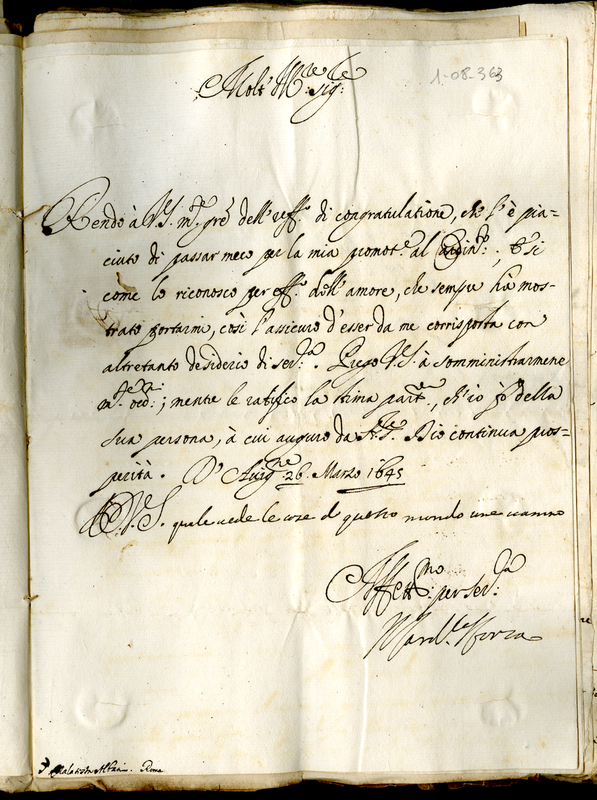 1-08-363
Molt' Ill.re Sig.re
Rendo à V.S. m.te gre dell'uff.o di congratulatione, che l'è pia=
ciuto di passar meco per la mia promot.e al ; E si
come lo riconosco per eff.o dell'amore, che sempre hà mos=
trato portarmi, così l'assicuro d'esser da me corrisposta con
altretanto desiderio di ser.la. Prego V.S. à somministrarmene
occ.ni; mentre le ratifico la stima part.re, ch'io fò della
sua persona, à cui auguro da Dio continua pros=
perità. D'Avig.ne 26. Marzo 1645
V.S. quale vede le cose di questo mondo
Affett.mo per ser.la
Card.le Sforza
Roma